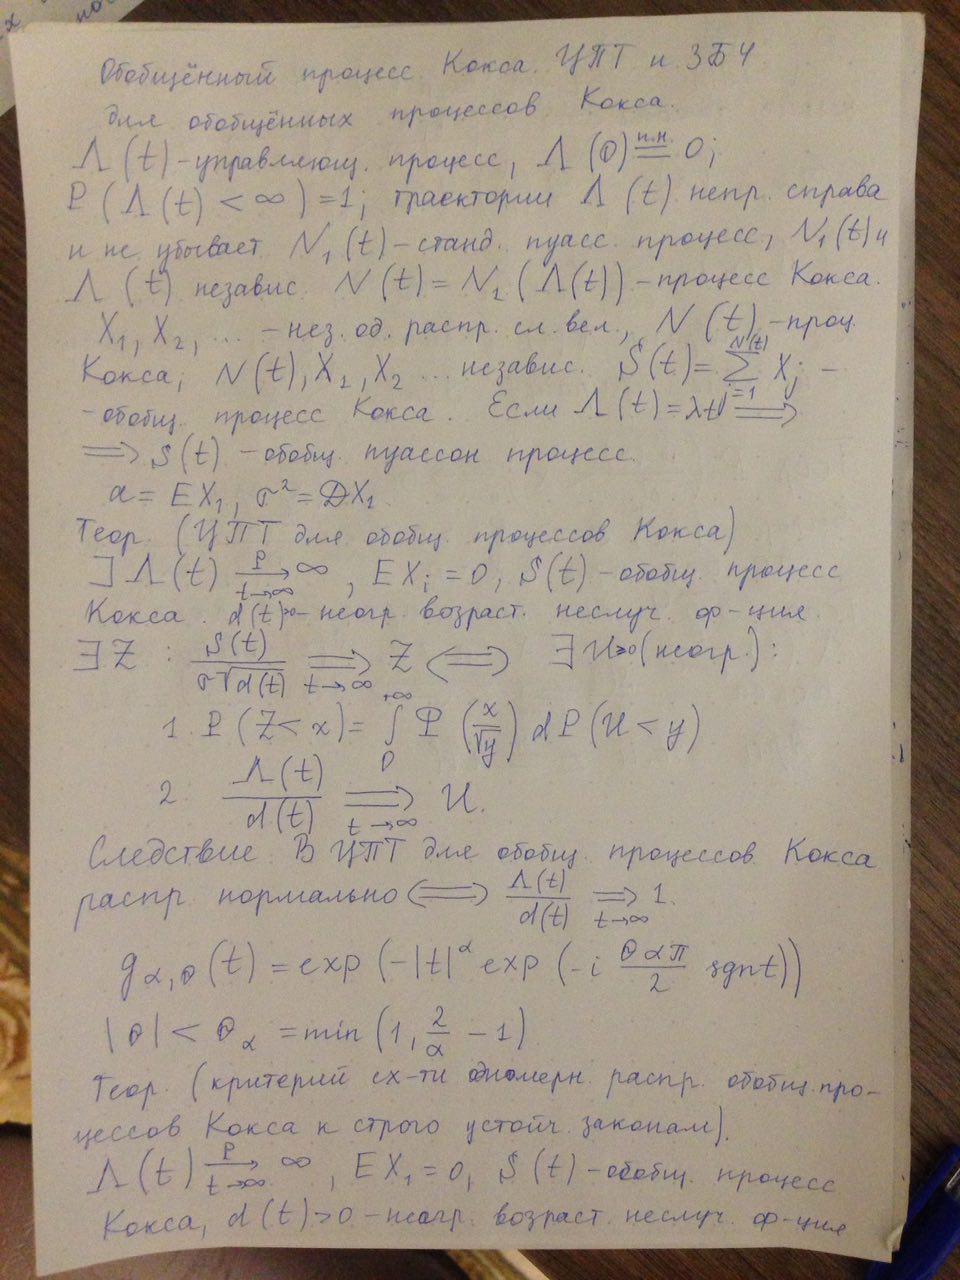 Обобщённый процесс Кокса. ЦПТ и ЗБЧ
для обобщённых процессов Кокса.
Λ(t) - управляющ. процесс, Λ(0) п.н.= 0;
P(Λ(t) < ∞) = 1; траектории Λ(t) непр. справа
и не убывает N₁(t) - станд. пуасс. процесс, N₁(t) и
Λ(t) независ. N(t) = N₁(Λ(t)) - процесс Кокса.
X₁, X₂, ... - нез. од. распр. сл. вел., N(t) - проц.
Кокса; N(t), X₁, X₂ ... независ. S(t) = ∑_{j=1}^{N(t)} X_j -
- обобщ. процесс Кокса. Если Λ(t) = λt ⟹
⟹ S(t) - обобщ. пуассон процесс.
a = EX₁, σ² = DX₁
Теор. (ЦПТ для обобщ. процессов Кокса)
∃ Λ(t) →^P_{t→∞} ∞, EX_i = 0, S(t) - обобщ. процесс
Кокса. d(t)>0 - неогр. возраст. неслуч. ф-ция.
∃ Z : S(t)/(σ√d(t)) ⟹_{t→∞} Z ⟺ ∃ U≥0 (неогр.):
1. P(Z < x) = ∫_0^{+∞} Φ(x/√y) dP(U < y)
2. Λ(t)/d(t) ⟹_{t→∞} U.
Следствие. В ЦПТ для обобщ. процессов Кокса
распр. нормально ⟺ Λ(t)/d(t) ⟹_{t→∞} 1.
g_{α,θ}(t) = exp(-|t|^α exp(-i θαπ/2 sgnt))
|θ| < θ_α = min(1, 2/α - 1)
Теор. (критерий сх-ти одномерн. распр. обобщ. про-
цессов Кокса к строго устойч. законам).
Λ(t) →^P_{t→∞} ∞, EX₁ = 0, S(t) - обобщ. процесс
Кокса, d(t) > 0 - неогр. возраст. неслуч. ф-ция